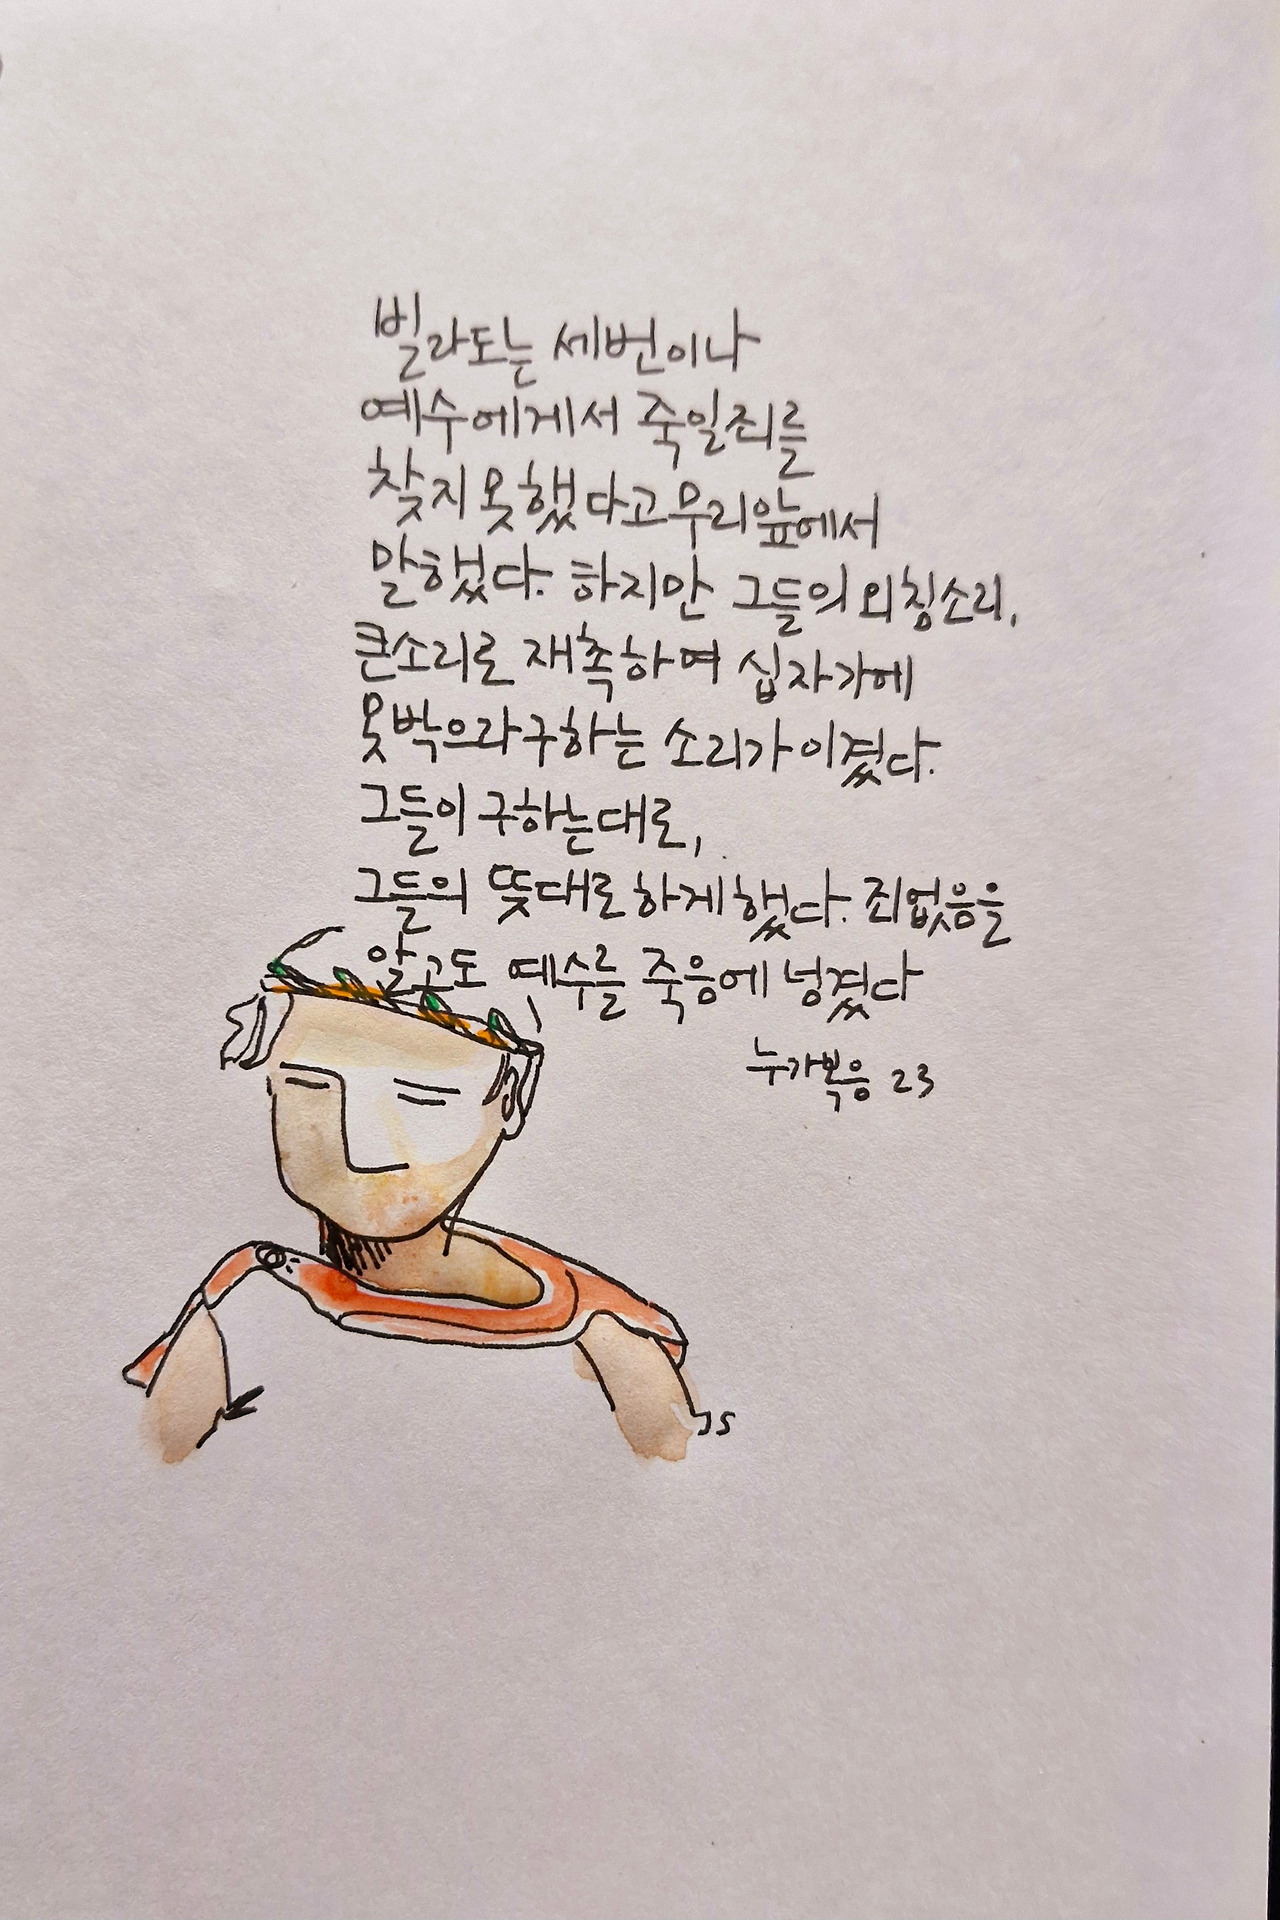 빌라도는 세번이나
예수에게서 죽일죄를
찾지 못했다고 무리앞에서
말했다. 하지만 그들의 외침소리,
큰소리로 재촉하여 십자가에
못박으라 구하는 소리가 이겼다.
그들이 구하는대로,
그들의 뜻대로 하게 했다. 죄없음을
알고도 예수를 죽음에 넝겼다
누가복음 23
JS